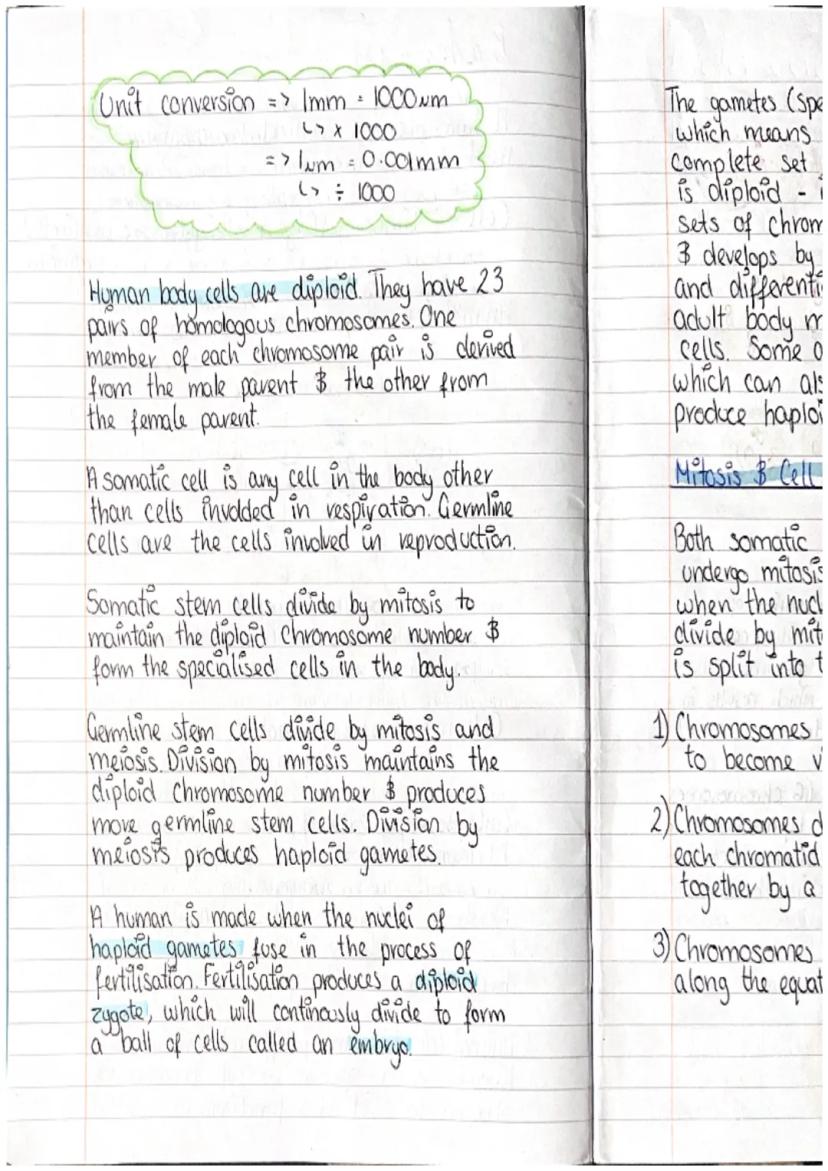 Unit conversion => 1mm = 1000um
↳ x 1000
=> 1um = 0.001mm
↳ ÷ 1000
Human body cells are diploid. They have 23
pairs of homologous chromosomes. One
member of each chromosome pair is derived
from the male parent & the other from
the female parent.
A somatic cell is any cell in the body other
than cells involded in respiration. Germline
cells are the cells involved in reproduction.
Somatic stem cells divide by mitosis to
maintain the diploid chromosome number &
form the specialised cells in the body.
Germline stem cells divide by mitosis and
meiosis. Division by mitosis maintains the
diploid chromosome number & produces
more germline stem cells. Division by
meiosis produces haploid gametes.
A human is made when the nuclei of
haploid gametes fuse in the process of
fertilisation. Fertilisation produces a diploid
zygote, which will continously divide to form
a ball of cells called an embryo.
The gametes (spe
which means
complete set
is diploid -
sets of chrom
& develops by
and differenti
adult body m
cells. Some o
which can als
produce haploi
Mitosis & Cell
Both somatic
undergo mitosis
when the nucl
divide by mit
is split into t
1) Chromosomes
to become v
2) Chromosomes d
each chromatid
together by a
3) Chromosomes
along the equat